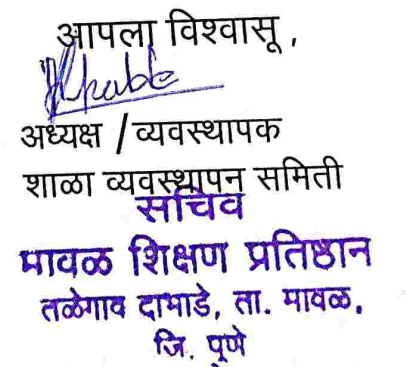 आपला विश्वासू ,
अध्यक्ष / व्यवस्थापक
शाळा व्यवस्थापन समिती
सचिव
मावळ शिक्षण प्रतिष्ठान
तळेगाव दाभाडे, ता. मावळ,
जि. पुणे